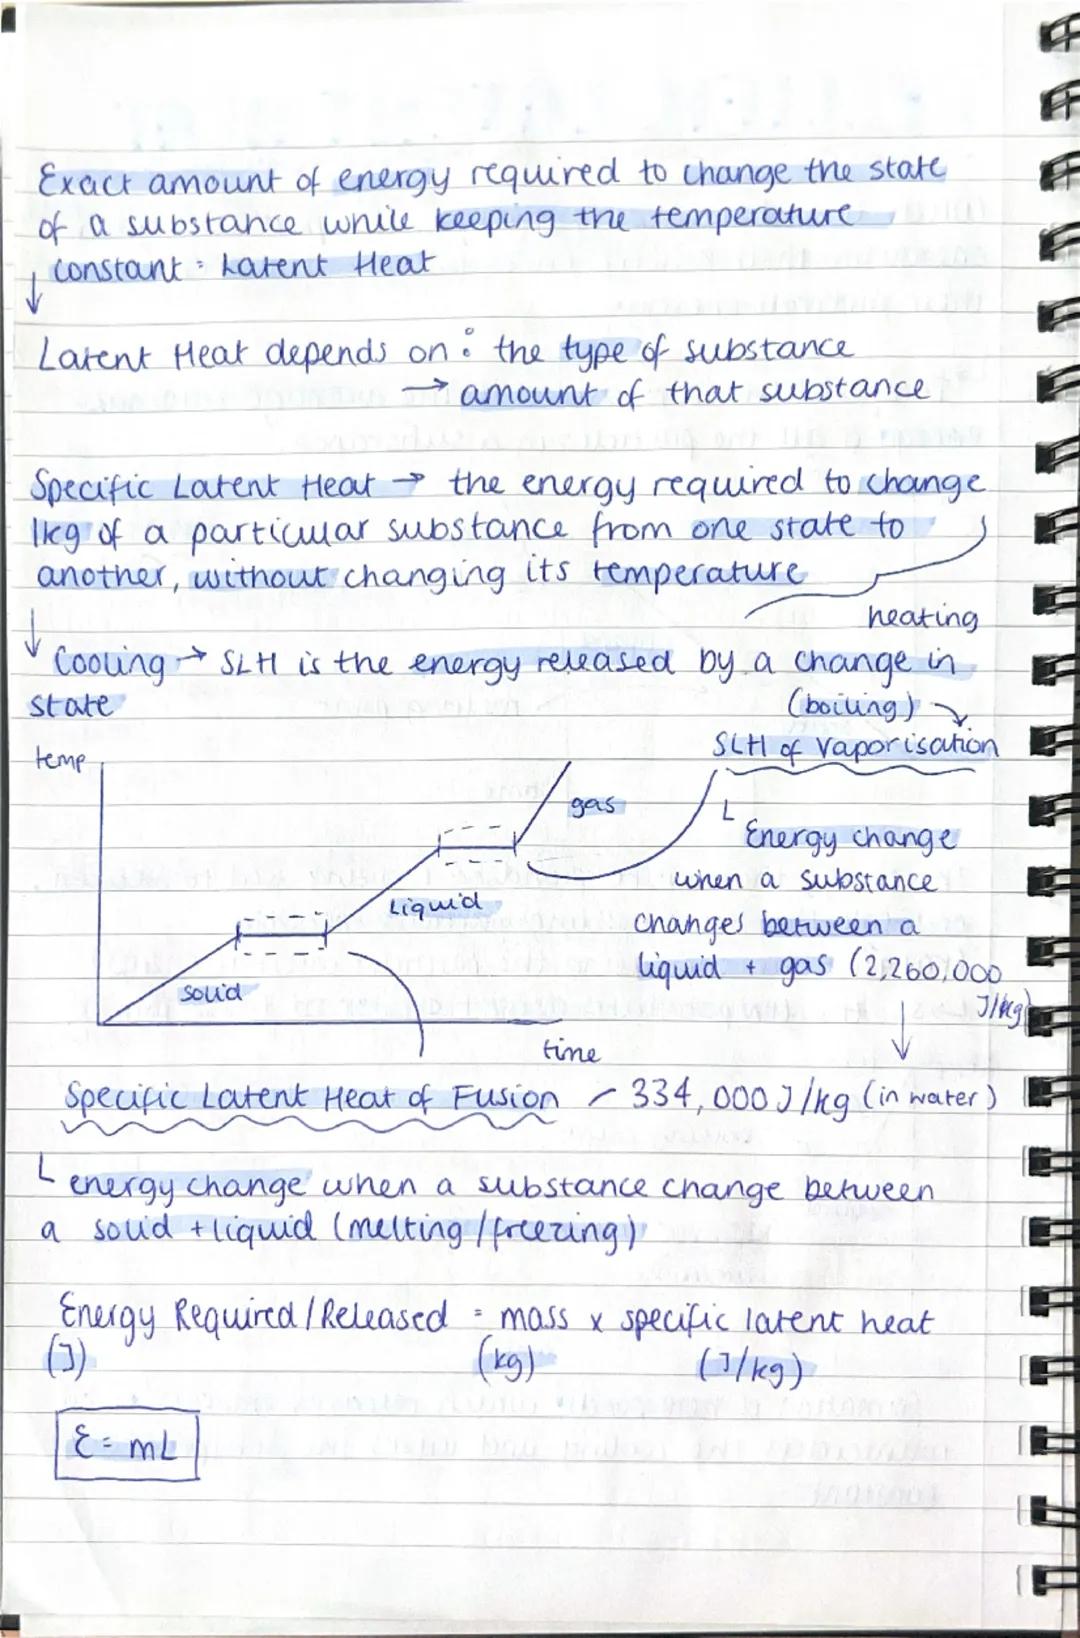 Exact amount of energy required to change the state
of a substance while keeping the temperature
↓ constant = Latent Heat
Latent Heat depends on : the type of substance
→ amount of that substance
Specific Latent Heat → the energy required to change
1kg of a particular substance from one state to
another, without changing its temperature
heating
↓ Cooling → SLH is the energy released by a change in
state
(boiling)
SLH of Vaporisation
temp
gas
Energy change
when a substance
Liquid
changes between a
liquid + gas (2,260,000
J/kg)
solid
time
Specific Latent Heat of Fusion - 334,000 J/kg (in water)
energy change when a substance change between
a solid + liquid (melting/freezing)
Energy Required/Released = mass x specific latent heat
(J) (kg) (J/kg)
E = mL